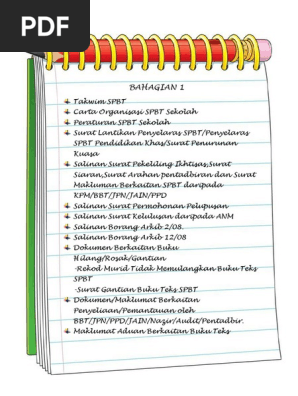 PDF
BAHAGIAN 1
Takwim SPBT
Carta Organisasi SPBT Sekolah
Peraturan SPBT Sekolah
Surat Lantikan Penyelaras SPBT/Penyelaras
SPBT Pendidikan Khas/Surat Penurunan
Kuasa
Salinan Surat Pekeliling Ikhtisas,Surat
Siaran,Surat Arahan pentadbiran dan Surat
Makluman Berkaitan SPBT daripada
KPM/BBT/JPN/JAIN/PPD
Salinan Surat Permohonan Pelupusan
Salinan Surat Kelulusan daripada ANM
Salinan Borang Arkib 2/08.
Salinan Borang Arkib 12/08
Dokumen Berkaitan Buku
Hilang/Rosak/Gantian
-Rekod Murid Tidak Memulangkan Buku Teks
SPBT
-Surat Gantian Buku Teks SPBT
Dokumen/Maklumat Berkaitan
Penyeliaan/Pemantauan oleh
BBT/JPN/PPD/JAIN/Nazir/Audit/Pentadbir.
Maklumat Aduan Berkaitan Buku Teks